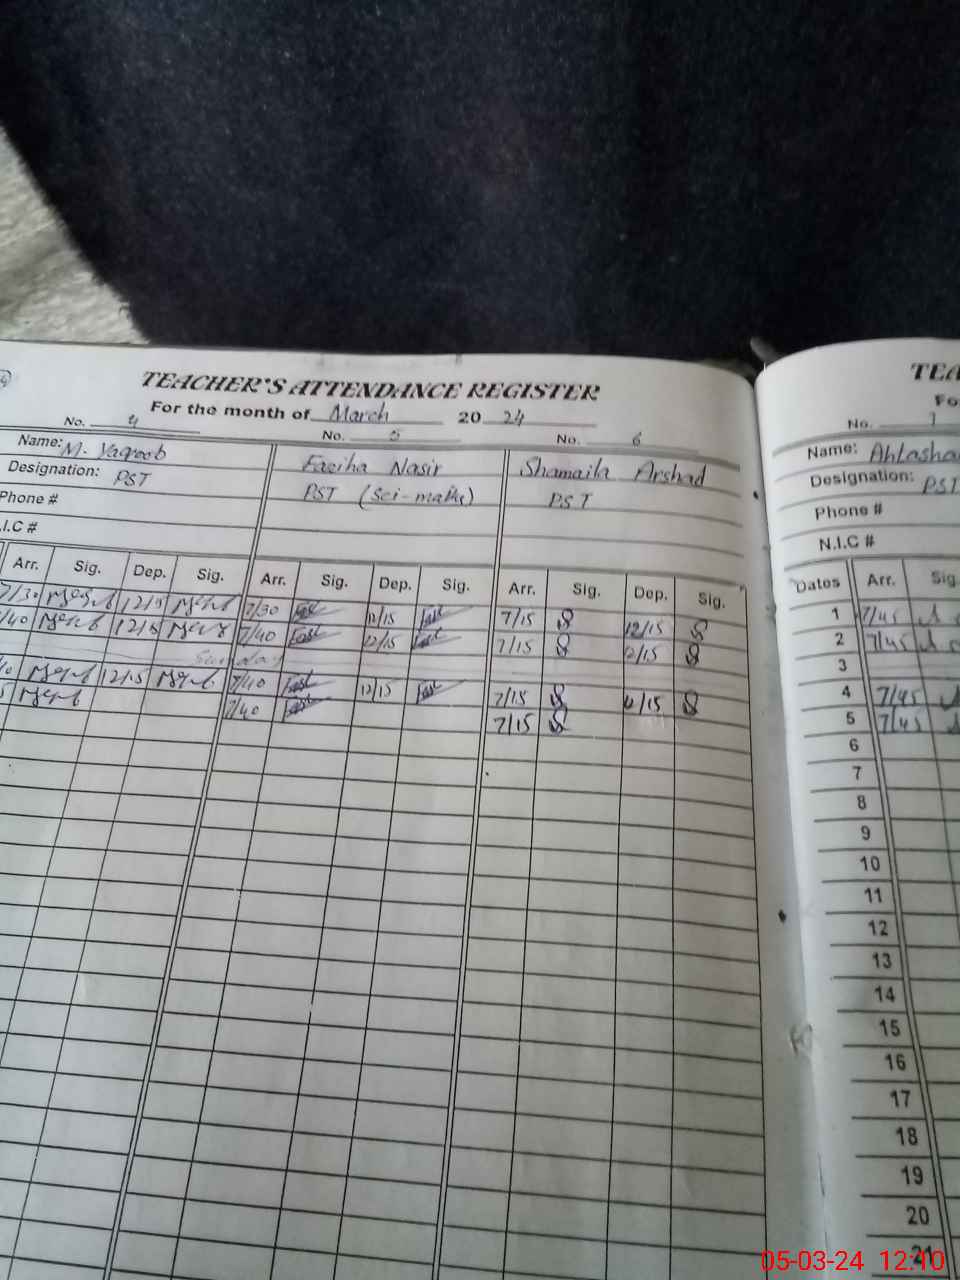 TEACHER'S ATTENDANCE REGISTER
For the month of March 2024
No. 4 No. 5 No. 6
Name: M. Yaqoob Faciha Nasir Shamaila Arshad
Designation: PST PST (Sci-maths) PST
Phone #
.I.C #
Arr. Sig. Dep. Sig. Arr. Sig. Dep. Sig. Arr. Sig. Dep. Sig.
7/30 12/15 7/30 12/15 7/15 12/15
7/40 12/15 7/40 12/15 7/15 12/15
Sunday
12/15 7/40 12/15 7/15 12/15
7/40 7/15
TEA
Fo
No. 7
Name: Ahtasha
Designation: PST
Phone #
N.I.C #
Dates Arr. Sig
1 7/45
2 7/45
3
4 7/45
5 7/45
6
7
8
9
10
11
12
13
14
15
16
17
18
19
20
21
05-03-24 12:10